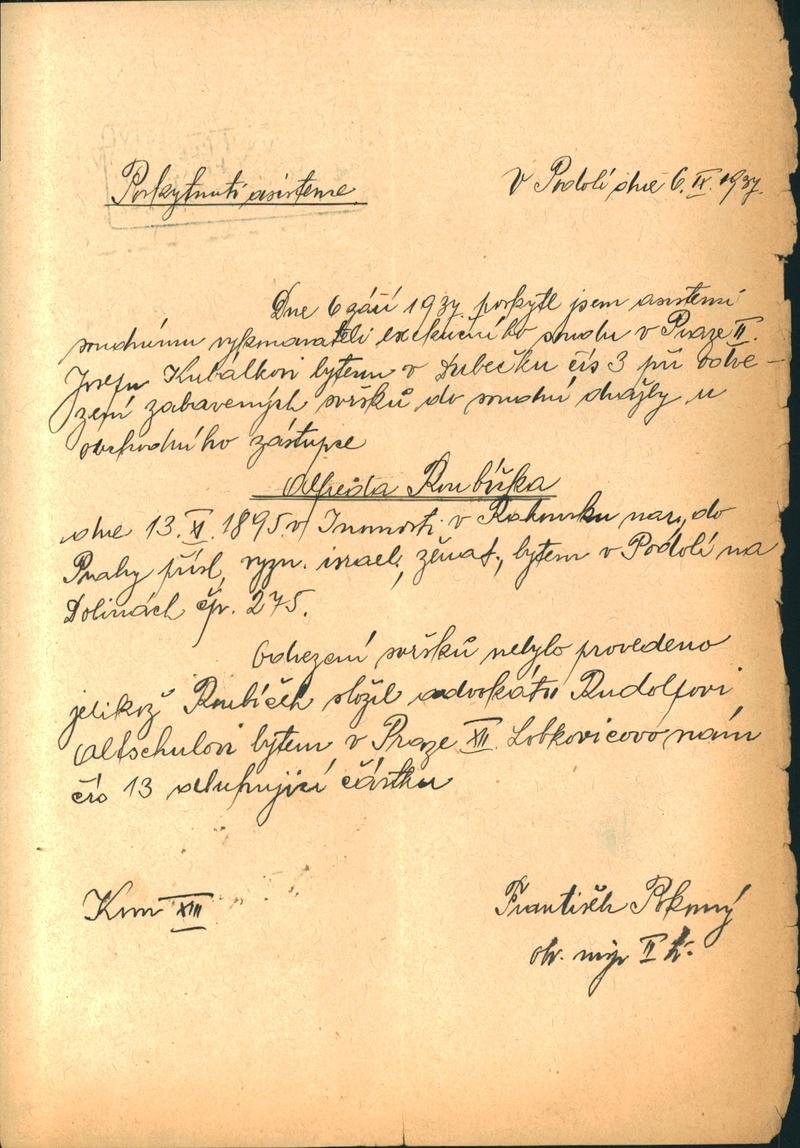 Poskytnutí asistence. V Podolí dne 6. IX. 1937.
Dne 6 září 1937. poskytl jsem asistenci
soudnímu vykonavateli exekučního soudu v Praze II.
Josefu Kubálkovi bytem v Dubečku čís 3 při odve-
zení zabavených svršků do soudní dražby u
obchodního zástupce
Alfréda Roubíčka
dne 13. XI. 1895. v v Rakovníku nar., do
Prahy přísl, vyzn. israel, ženat., bytem v Podolí na
Dolinách čp. 275.
Odvezení svršků nebylo provedeno
jelikož Roubíček složil advokátu Rudolfovi
Altschulovi bytem v Praze XII. Lobkovicovo nám
čís 13 dlužnou částku
Kom XIII
František Pokorný